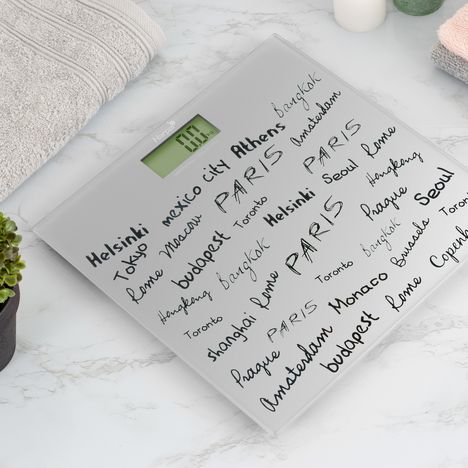 0.0
Helsinki mexico city Athens Bangkok
Tokyo Moscow PARIS PARIS Amsterdam
Rome budapest Toronto Helsinki Seoul Rome
Hongkong Bangkok PARIS Prague Hongkong
Toronto shanghai Rome Toronto Bangkok Seoul
Prague PARIS Monaco Brussels Toronto
Amsterdam budapest Rome Copenh